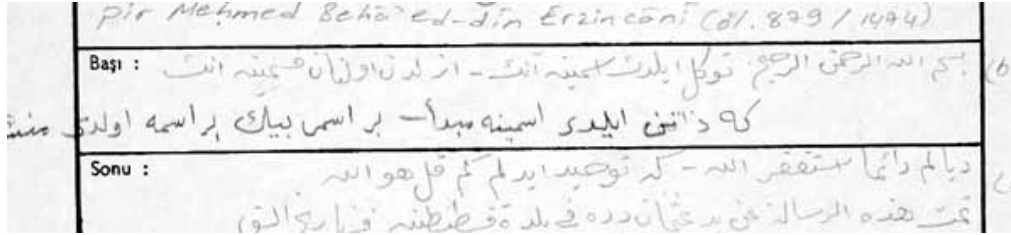 pir Mehmed Behā'ed-dīn Erzincānī (öl. 879 / 1474)
Başı : بسم الله الرحمن الرحيم توكل ايلدك اسمينه آنك - ازلدن اولنان انك
كه ذاتنى ايلدى اسمينه مبدأ - بر اسمى بيك بر اسمه اولدى
Sonu : ديالم دائما استغفر الله - كه توحيد ايدلم كم قل هو الله
تمت هذه الرسالة عن يد عثمان دده فى بلدة قسطنطنيه